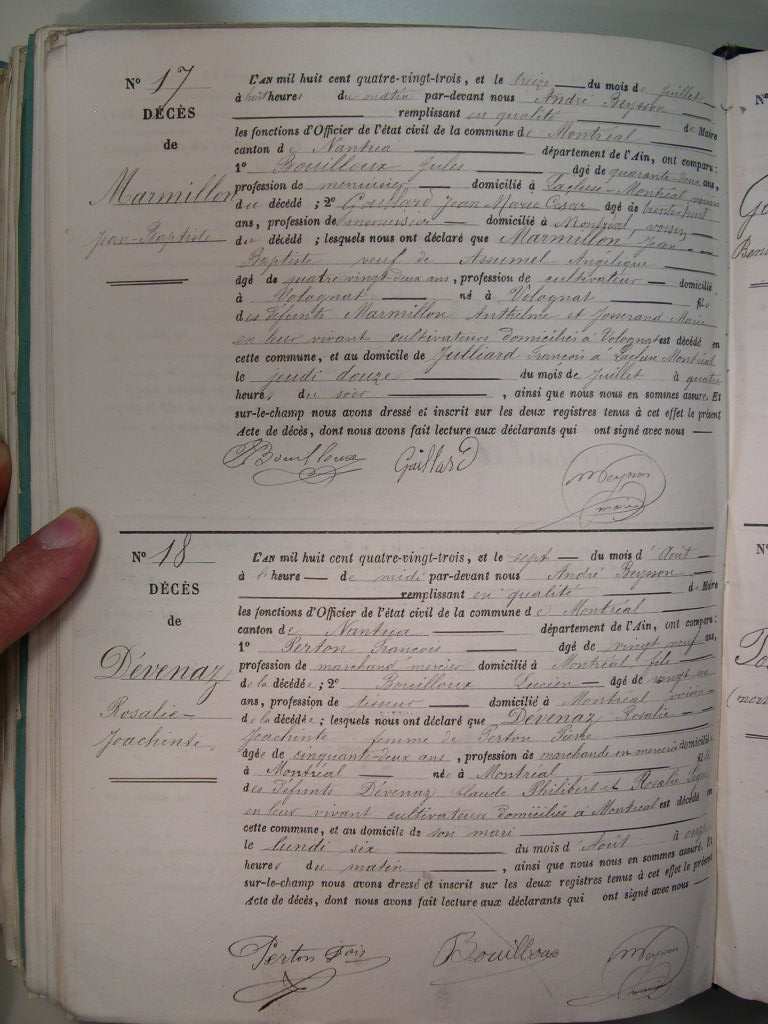 N° 17
DÉCÈS
de
Marmillon
Jean-Baptiste
L'AN mil huit cent quatre-vingt-trois, et le treize du mois de Juillet
à huit heures du matin par-devant nous André Reynon
remplissant en qualité de Maire
les fonctions d'Officier de l'état civil de la commune de Montréal
canton de Nantua département de l'Ain, ont comparu :
1° Bouilloux Jules âgé de quarante deux ans,
profession de menuisier domicilié à Lacluse-Montréal, voisin
du décédé ; 2° Gaillard Jean Marie César âgé de trente huit
ans, profession de menuisier domicilié à Montréal, voisin
du décédé ; lesquels nous ont déclaré que Marmillon Jean
Baptiste veuf de Assumel Angélique
âgé de quatre vingt-deux ans, profession de cultivateur domicilié
à Volognat né à Volognat fils
des défunts Marmillon Anthelme et Josserand Marie
en leur vivant cultivateurs domiciliés à Volognat est décédé en
cette commune, et au domicile de Julliard François à Lacluse Montréal
le jeudi douze du mois de Juillet à quatre
heures du soir , ainsi que nous nous en sommes assuré. Et
sur-le-champ nous avons dressé et inscrit sur les deux registres tenus à cet effet le présent
Acte de décès, dont nous avons fait lecture aux déclarants qui ont signé avec nous
Bouilloux Gaillard Reynon
maire
N° 18
DÉCÈS
de
Dévenaz
Rosalie-
Joachinte
L'AN mil huit cent quatre-vingt-trois, et le sept du mois d'Août
à heure de midi par-devant nous André Reynon
remplissant en qualité de Maire
les fonctions d'Officier de l'état civil de la commune de Montréal
canton de Nantua département de l'Ain, ont comparu :
1° Perton François âgé de vingt neuf ans,
profession de marchand mercier domicilié à Montréal fils
de la décédée ; 2° Bouilloux Lucien âgé de vingt
ans, profession de tisseur domicilié à Montréal voisin
de la décédée ; lesquels nous ont déclaré que Dévenaz Rosalie
Joachinte femme de Perton Pierre
âgée de cinquante-deux ans, profession de marchande en mercerie domiciliée
à Montréal née à Montréal fille
des défunts Dévenaz Claude Philibert et Rosalie
en leur vivant cultivateurs domiciliés à Montréal est décédée en
cette commune, et au domicile de son mari
le lundi six du mois d'Août à onze
heures du matin , ainsi que nous nous en sommes assuré. Et
sur-le-champ nous avons dressé et inscrit sur les deux registres tenus à cet effet le présent
Acte de décès, dont nous avons fait lecture aux déclarants qui ont signé avec nous
Perton Bouilloux Reynon
maire
N°
N°